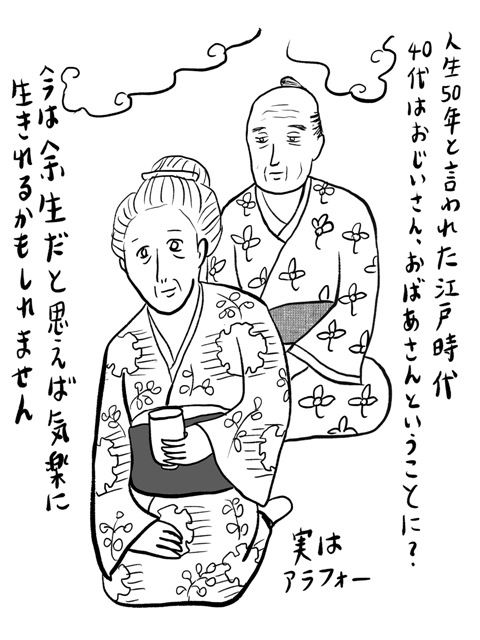 人生50年と言われた江戸時代
40代はおじいさん、おばあさんということに?
今は余生だと思えば気楽に
生きれるかもしれません
実は
アラフォー